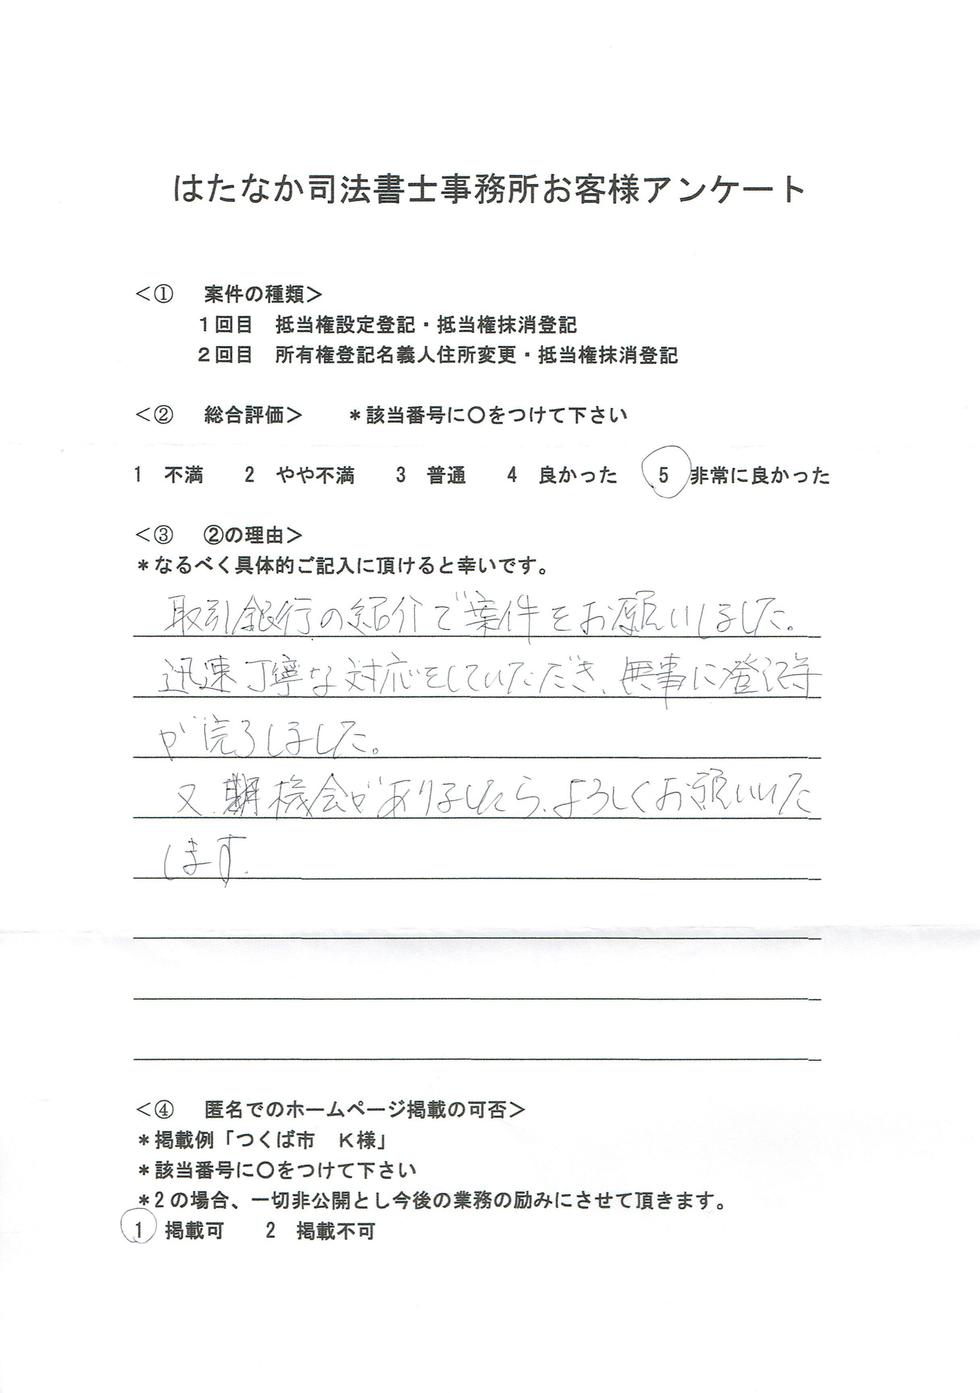 はたなか司法書士事務所お客様アンケート
＜①　案件の種類＞
１回目　抵当権設定登記・抵当権抹消登記
２回目　所有権登記名義人住所変更・抵当権抹消登記
＜②　総合評価＞　　＊該当番号に○をつけて下さい
1　不満　　2　やや不満　　3　普通　　4　良かった　　5　非常に良かった
＜③　②の理由＞
＊なるべく具体的ご記入に頂けると幸いです。
取引銀行の紹介で案件をお願いしました。
迅速丁寧な対応をしていただき、無事に登記等
が完了しました。
又、機会がありましたら、よろしくお願いいた
します。
＜④　匿名でのホームページ掲載の可否＞
＊掲載例「つくば市　Ｋ様」
＊該当番号に○をつけて下さい
＊2の場合、一切非公開とし今後の業務の励みにさせて頂きます。
1　掲載可　　2　掲載不可